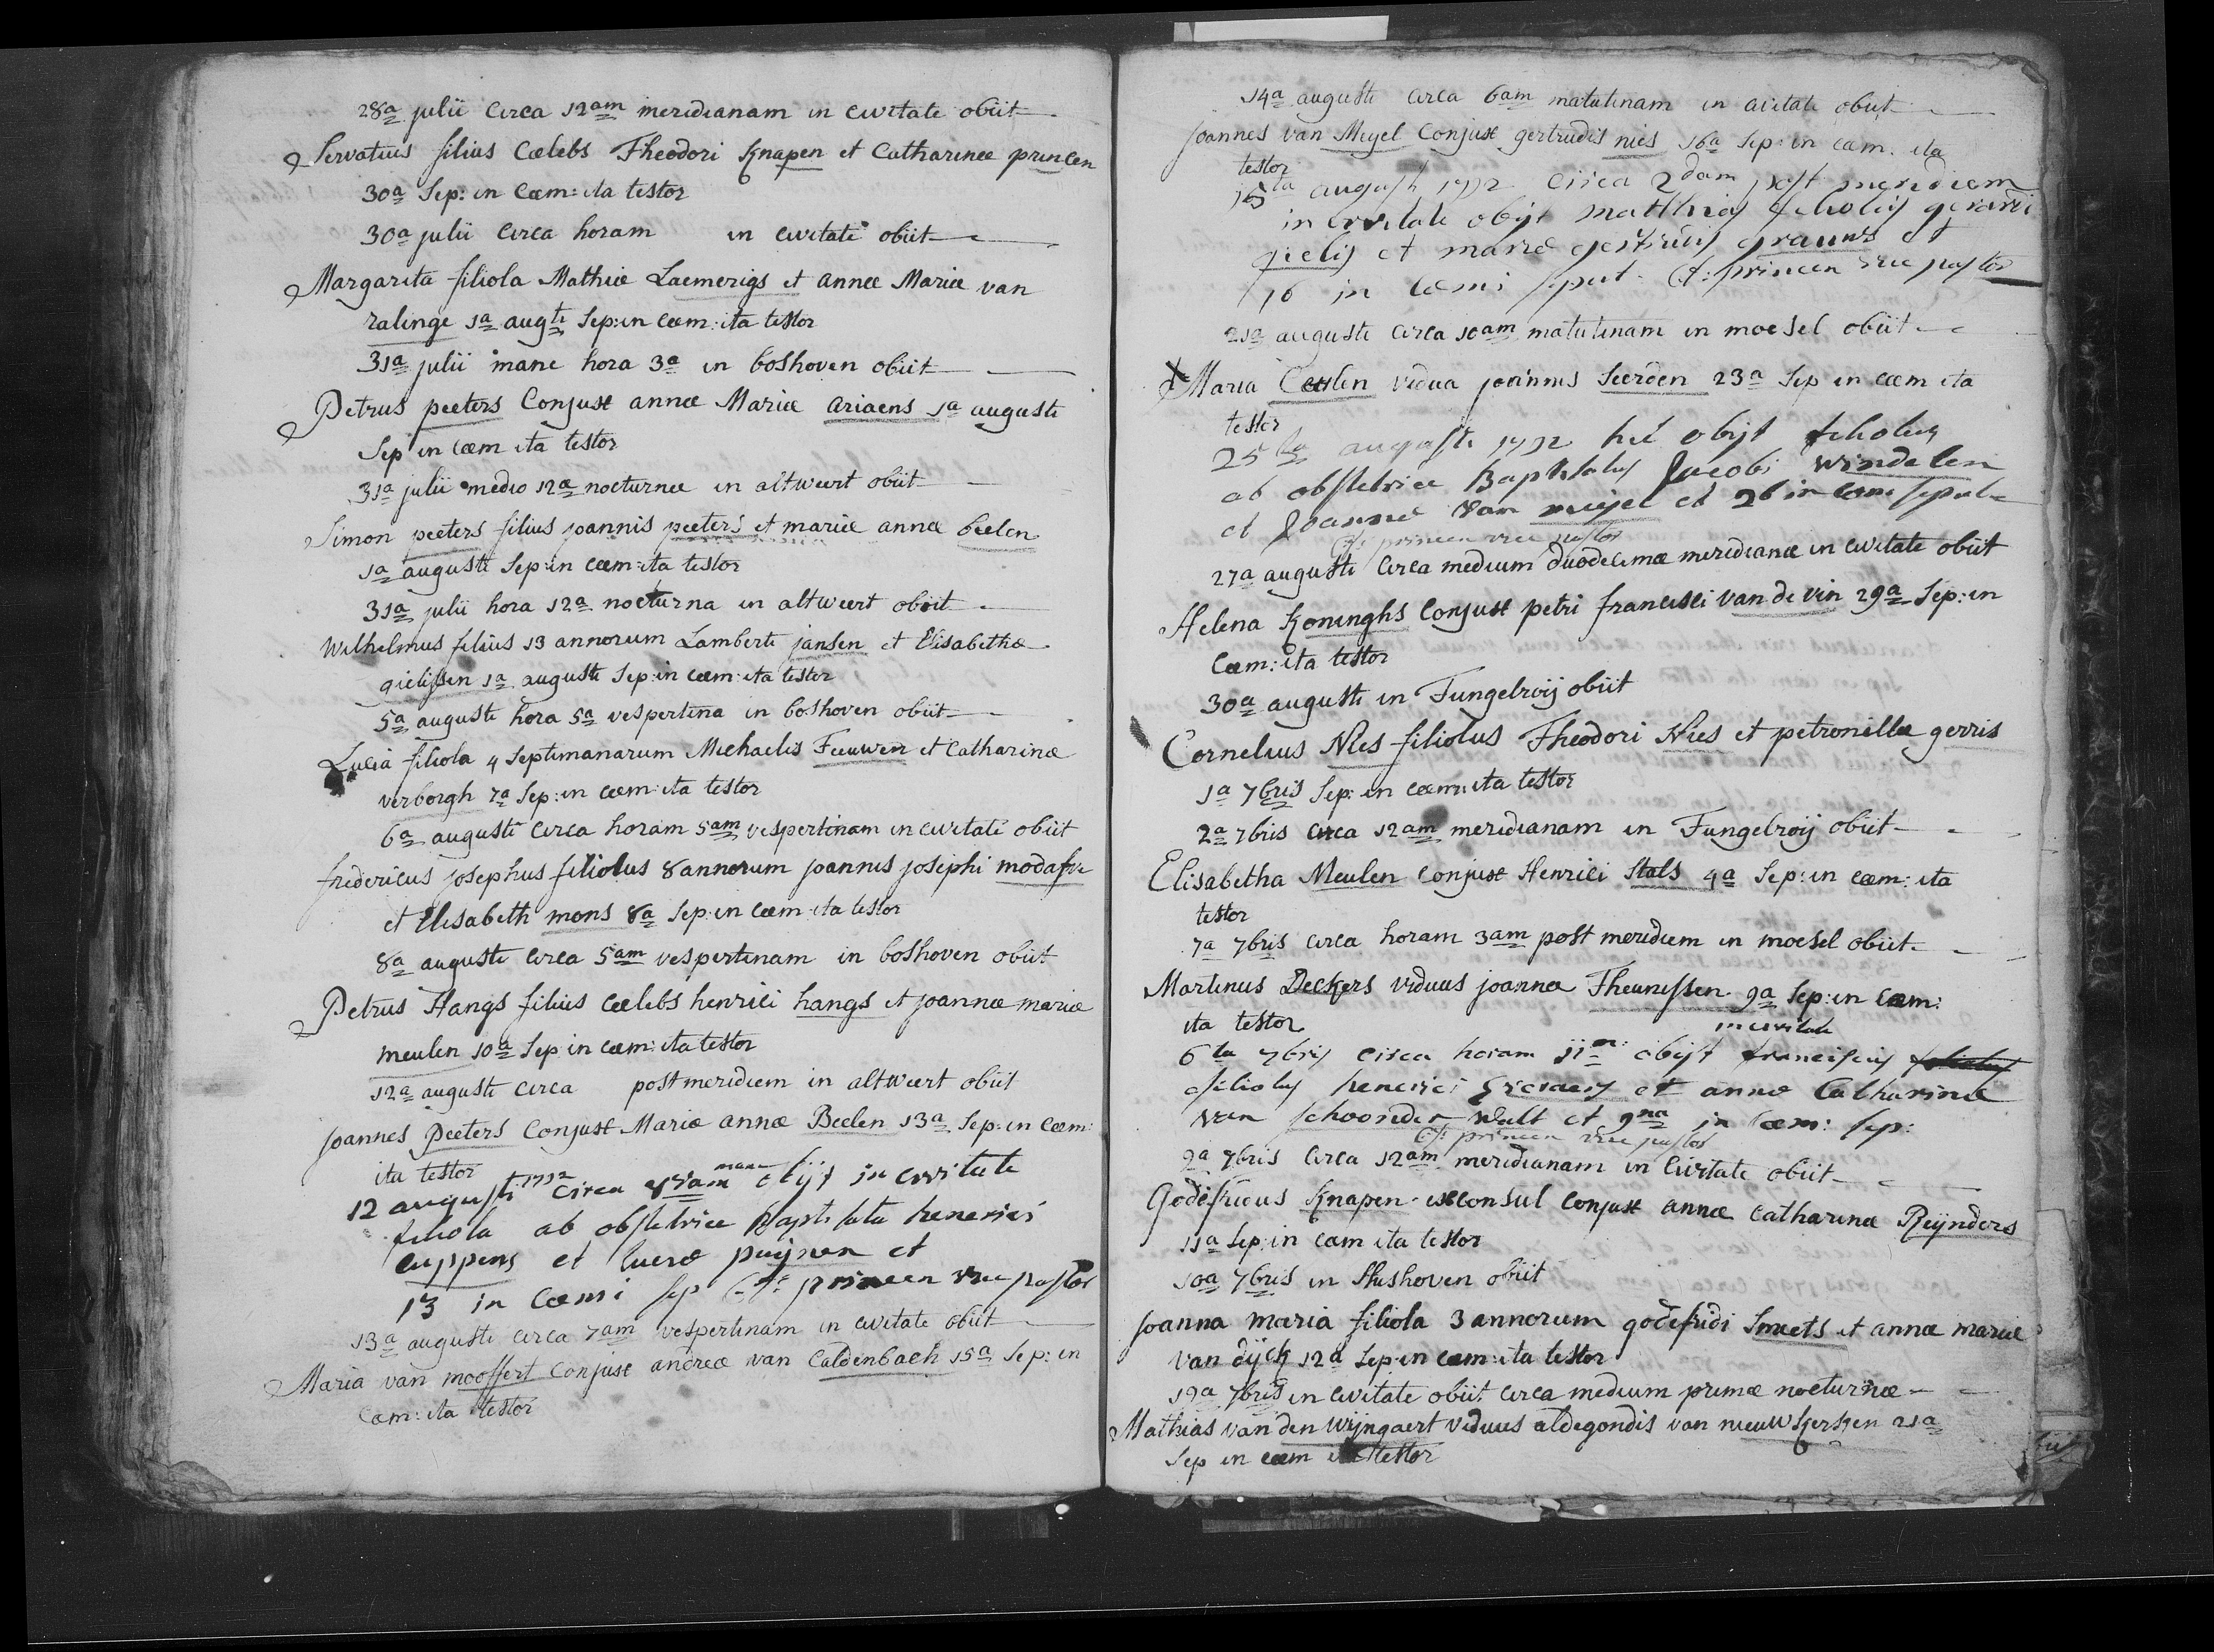 28a julii circa 12am meridianam in civitate obiit
Servatius filius Cœlebs Theodori Knapen et Catharinæ princen
30a Sep: in Cœm: ita testor
30a julii circa horam in civitate obiit
Margarita filiola Mathiæ Laemerigs et annæ Mariæ van
ralinge 1a augti Sep: in cœm: ita testor
31a julii mane hora 3a in boshoven obiit
Petrus peeters Conjux annæ Mariæ ariaens 1a augusti
Sep in cœm ita testor
31a julii medio 12æ nocturnæ in altweert obiit
Simon peeters filius joannis peeters et mariæ annæ beelen
1a augusti Sep: in cœm: ita testor
31a julii hora 12a nocturna in altweert obiit
Wilhelmus filius 13 annorum Lamberti jansen et Elisabethæ
gielissen 1a augusti Sep: in cœm: ita testor
5a augusti hora 5a vespertina in boshoven obiit
Lucia filiola 4 Septimanarum Michaelis Feuwen et Catharinæ
verborgh 7a Sep: in cœm: ita testor
6a augusti circa horam 5am vespertinam in civitate obiit
fredericus josephus filiolus 8 annorum joannis josephi
et Elisabeth mons 8a Sep: in cœm ita testor
8a augusti circa 5am vespertinam in boshoven obiit
Petrus Hangs filius cœlebs henrici hangs et joannæ mariæ
meulen 10a Sep in cœm: ita testor
12a augusti circa post meridiem in altweert obiit
joannes Peeters Conjux Mariæ annæ Beelen 13a Sep: in Cœm:
ita testor
12 augusti 1792 circa mane obijt in civitate
filiola ab obstetrice Baptisata henerici
cuppens et lucræ puijnen et
13 in Cœmi Sep C: princen vice pastor
13a augusti circa 7am vespertinam in civitate obiit
Maria van mooffert Conjux andreæ van Caldenbach 15a Sep: in
Cœm: ita testor
14a augusti circa 6am matutinam in civitate obiit
joannes van Meyel Conjux gertrudis nies 16a Sep: in cœm. ita
testor
15ta augusti 1792 circa 2dam post meridiem
in civitate obijt matthias filiolus gerardi
gielis et mariæ gertrudis grauws et
16 in cœmi sepult. C: princen vice pastor
21a augusti circa 10am matutinam in moesel obiit
Maria Ceulen vidua joannis Seerden 23a Sep in cœm ita
testor
25ta augusti 1792 hic obijt filiolus
ab obstetrice Baptisatus Jacobi windelen
et Joannæ van meijel et 26 in cœmi sepult
C: princen vice pastor
27a augusti circa medium duodecimæ meridianæ in civitate obiit
Helena Koninghs Conjux petri francisci van de vin 29a Sep: in
Cœm: ita testor
30a augusti in Tungelroij obiit
Cornelius Nies filiolus Theodori Nies et petronillæ gerris
1a 7bris Sep: in cœm: ita testor
2a 7bris circa 12am meridianam in Tungelroij obiit
Elisabetha Meulen Conjux Henrici Stals 4a Sep: in cœm: ita
testor
7a 7bris circa horam 3am post meridiem in moesel obiit
Martinus Deckers viduus joannæ Theunissen 9a Sep: in Cœm:
ita testor
in civitate
6ta 7bris circa horam 11m obijt franciscus
filiolus henerici et annæ Catharinæ
van schoonder walt et 9na in Cœm: sep:
C: princen vice pastor
9a 7bris circa 12am meridianam in Civitate obiit
Godefridus Knapen exconsul Conjux annæ catharinæ Reijnders
11a Sep: in cœm ita testor
10a 7bris in Hushoven obiit
joanna maria filiola 3 annorum godefridi Smeets et annæ mariæ
van dijck 12a Sep: in cœm: ita testor
19a 7bris in civitate obiit circa medium primæ nocturnæ
Mathias van den Wijngaert viduus aldegondis van nieuwkerken 21a
Sep in cœm ita testor